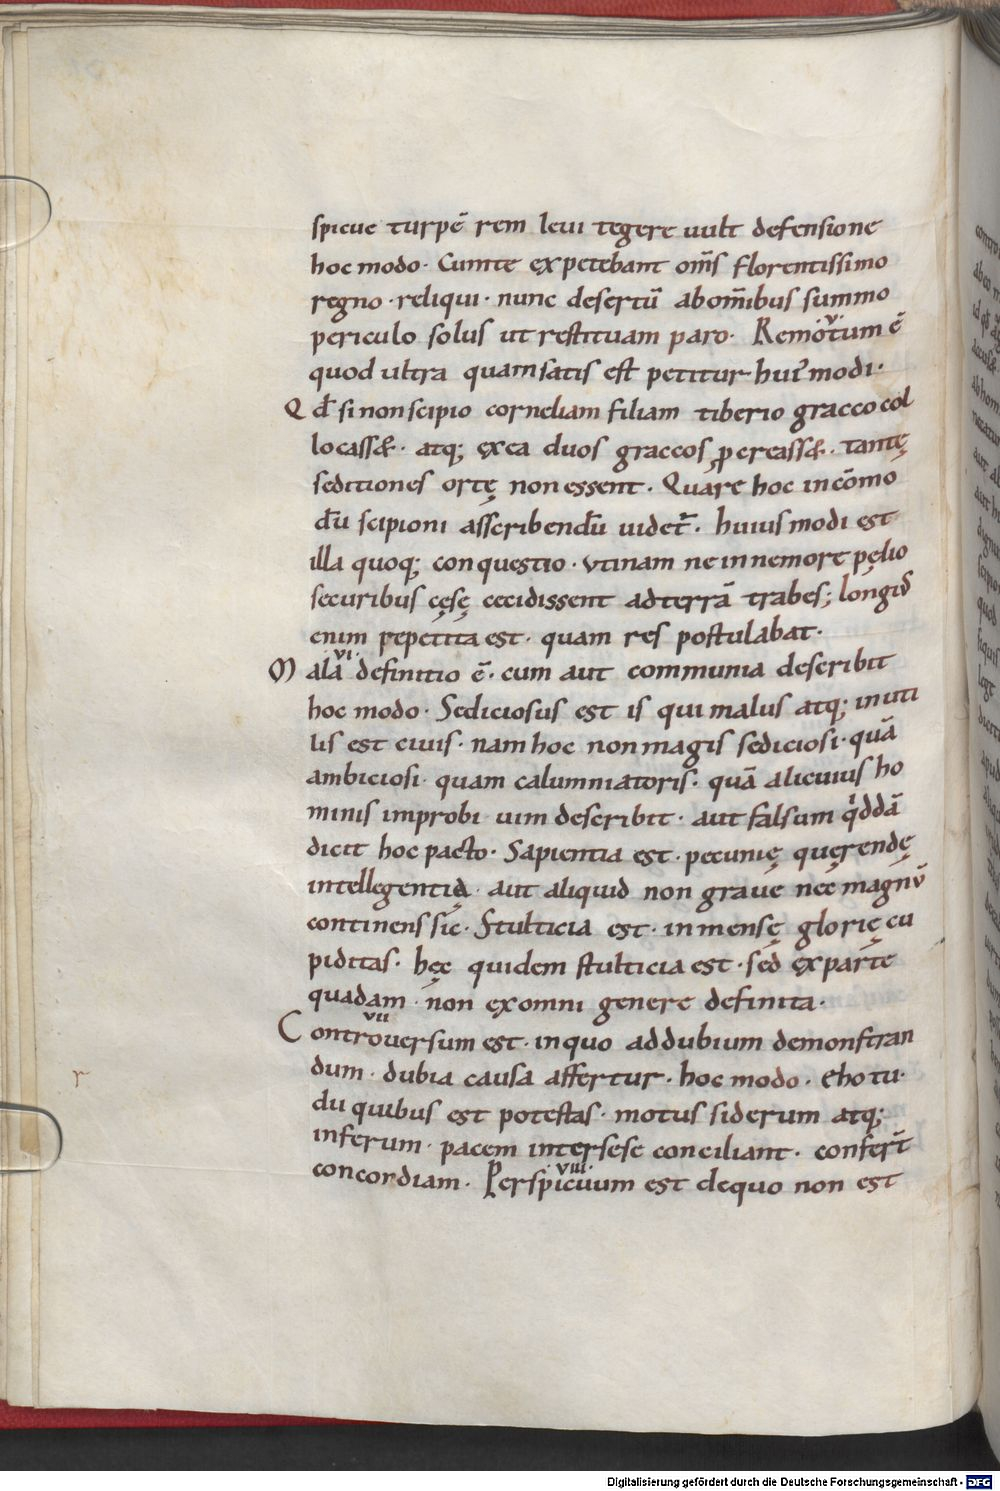 spicue turpē rem leui tegere uult defensione
hoc modo· Cum te expetebant om̄s florentissimo
regno· reliqui· nunc desertū ab om̄ibus summo
periculo solus ut restituam paro· Remotum ē
·v·
quod ultra quam satis est petitur hui᾽ modi·
Qd̄ si non scipio corneliam filiam tiberio gracco col
locass&· atq; ex ea duos graccos ꝓcreass&· tantę
seditiones ortę non essent· Quare hoc incōmo
dū scipioni asscribendū uidet᷑· huius modi est
illa quoq; conquestio· vtinam ne in nemore pęlio
securibus cęsę cecidissent ad terrā trabes; longiꝰ
enim repetita est· quam res postulabat·
·vi·
Mala definitio ē· cum aut communia describit
hoc modo· Sediciosus est is qui malus atq; inuti
lis est ciuis· nam hoc non magis sediciosi· quā
ambiciosi· quam calumniatoris· quā alicuius ho
minis improbi uim describit· aut falsum qͥddā
dicit hoc pacto· Sapientia est· pecunię quęrendę
intellegentia· aut aliquid non graue nec magnū
continens sic· Stulticia est· inmensę glorię cu
piditas· hęc quidem stulticia est· sed ex parte
quadam· non ex omni genere definita·
·vii·
Controuersum est· in quo ad dubium demonstran
dum· dubia causa affertur· hoc modo· eho tu·
du quibus est potestas· motus siderum atq;
inferum· pacem inter sese conciliant· confert̄
concordiam· Perspicuum est de quo non est
·viii·
r
Digitalisierung gefördert durch die Deutsche Forschungsgemeinschaft - DFG